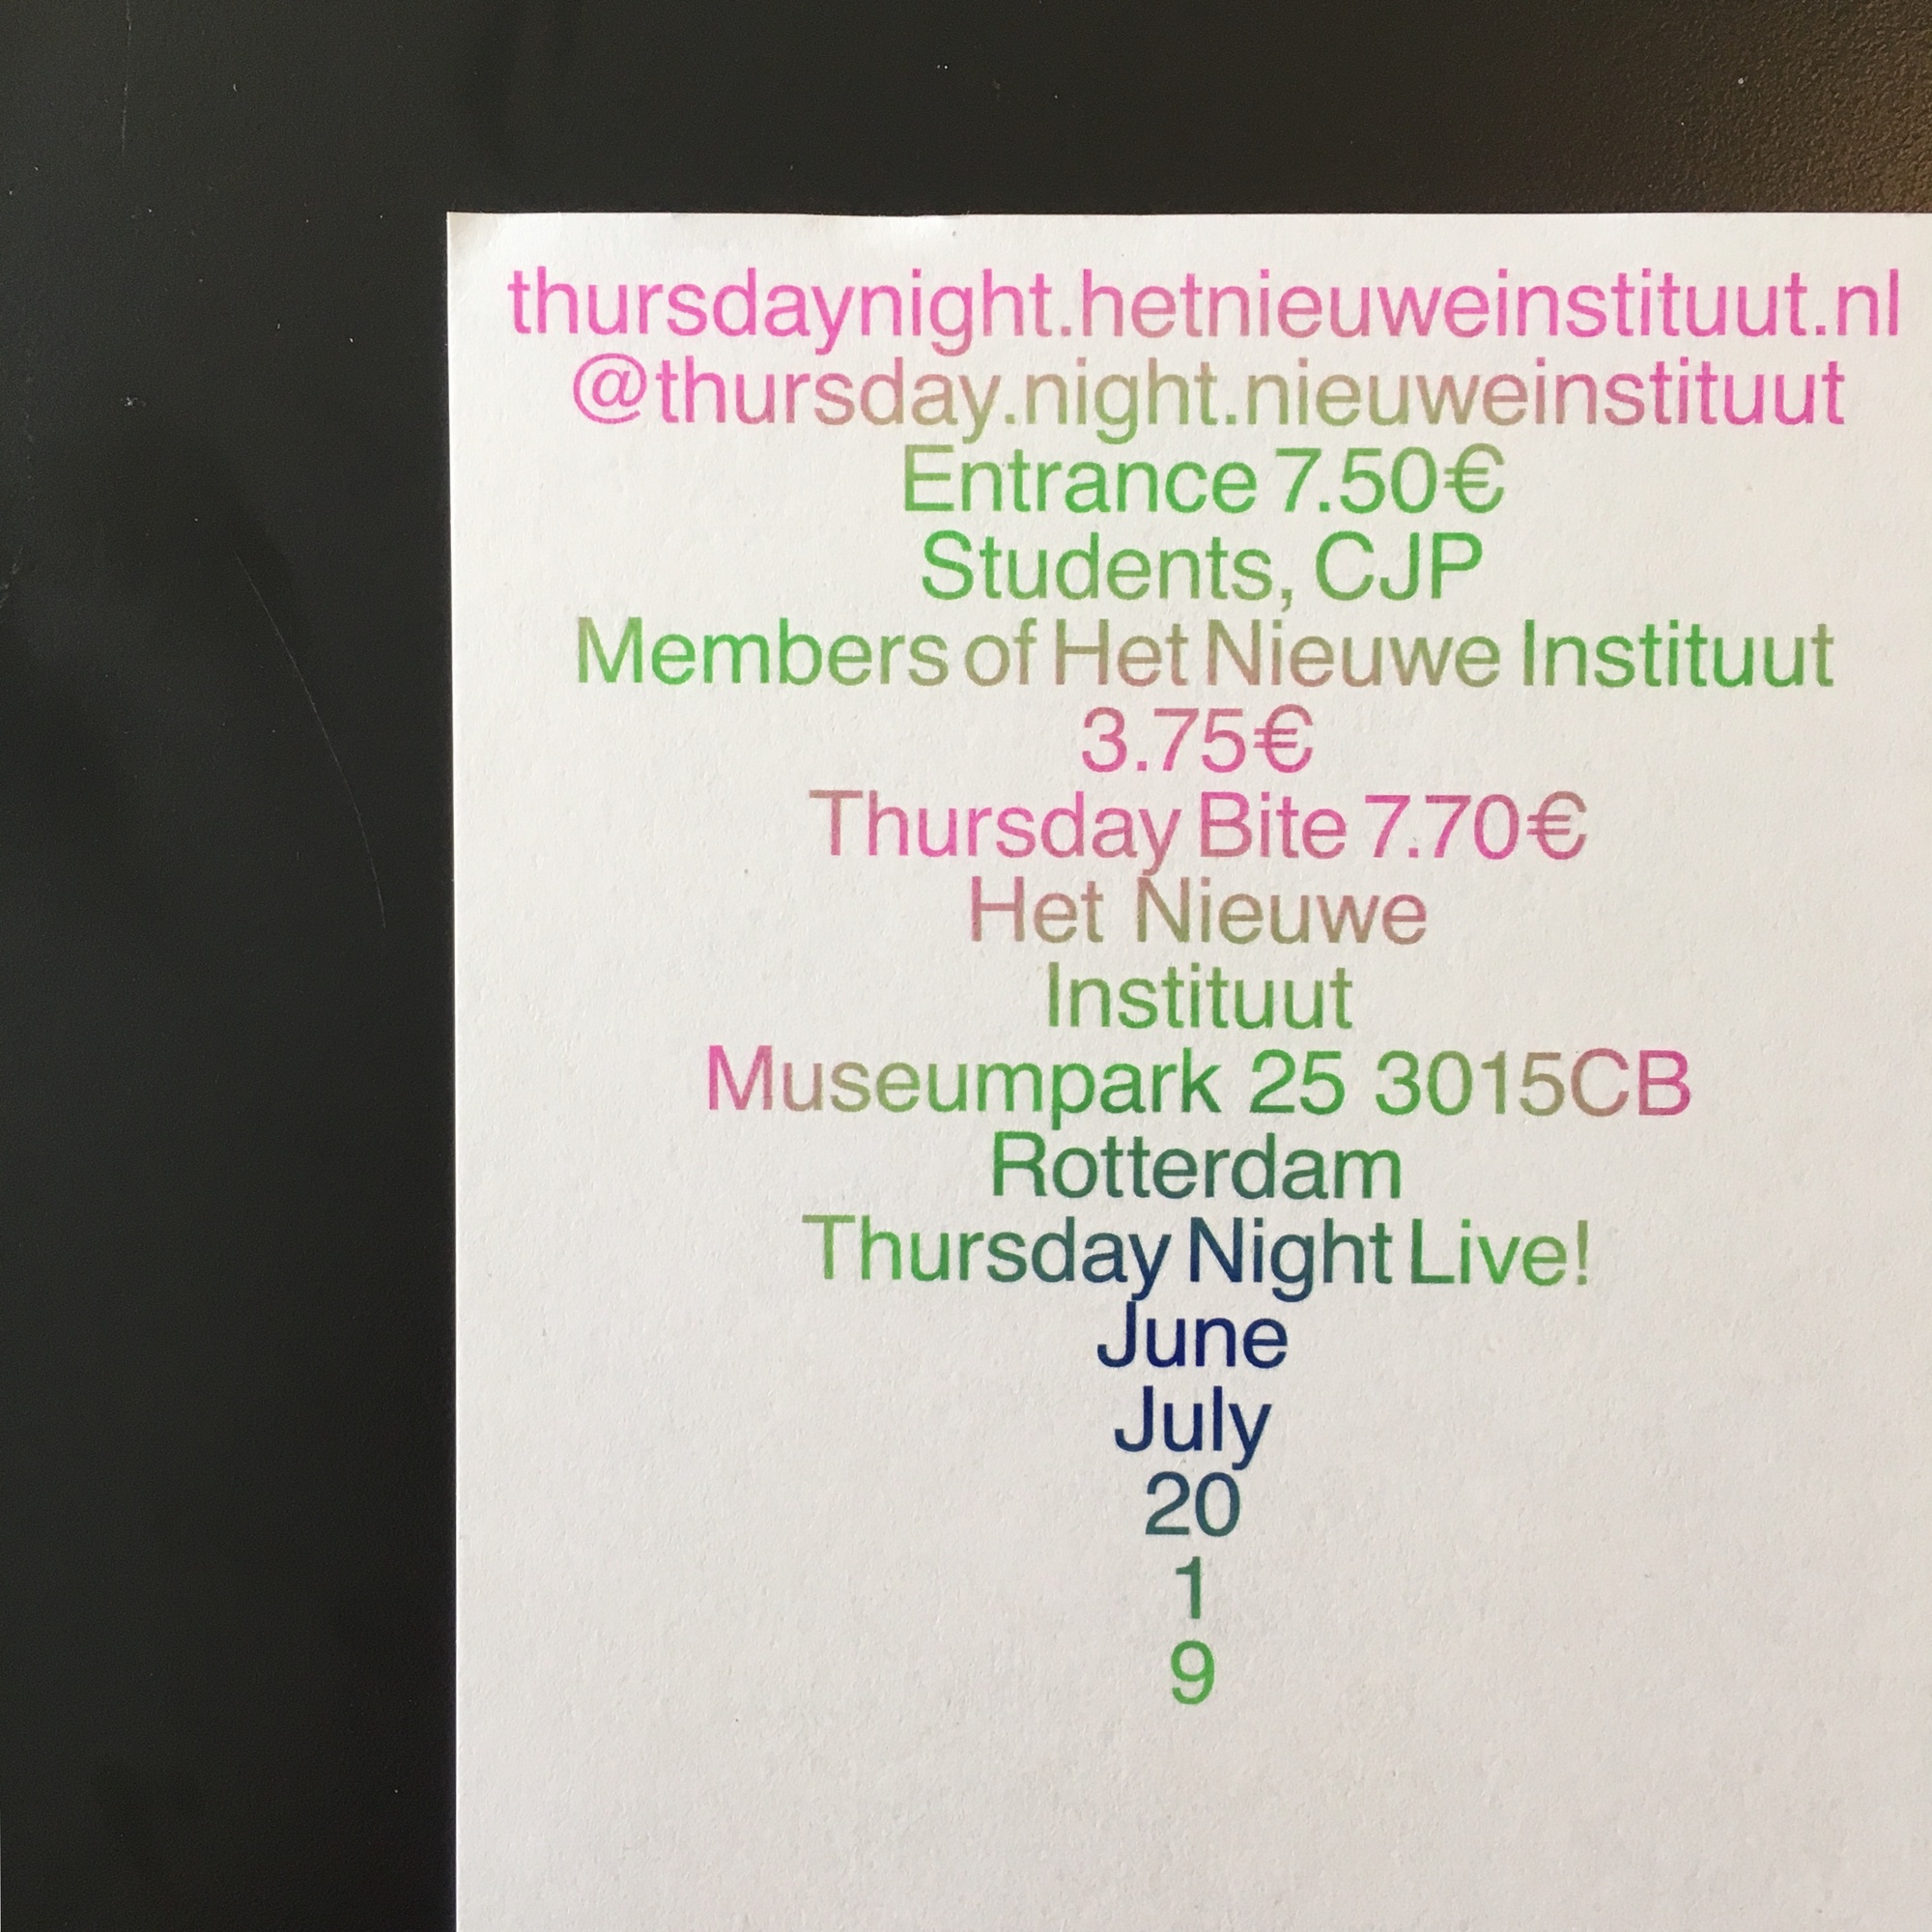 thursdaynight.hetnieuweinstituut.nl
@thursday.night.nieuweinstituut
Entrance 7.50€
Students, CJP
Members of Het Nieuwe Instituut
3.75€
Thursday Bite 7.70€
Het Nieuwe
Instituut
Museumpark 25 3015CB
Rotterdam
Thursday Night Live!
June
July
20
1
9